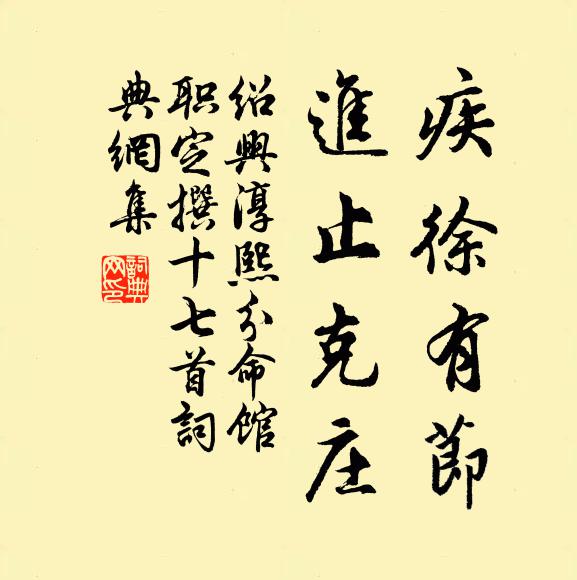 疾徐有節
進止克庄
绍興淳熙分命馆
职定撰十七首詞
典網集
詞典網印